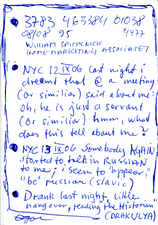 3783 463384 01038
08/08 95 4977
WILLIAM SPITHONICK
HOME MARKETING ASSOCIATES
NYC 12 IX 06 Last night I
dreamt that @ a meeting
(or similia) said about me:
oh, he is just a servant
(or similia) hmm, what
does this tell about me?
NYC 13 IX 06 Somebody AGAIN
started to talk in RUSSIAN
to me; I seem to "appear"
"be" russian (slavic)
Drank last night, little
hangover, reading "the Historian"
(DRAKULYA)